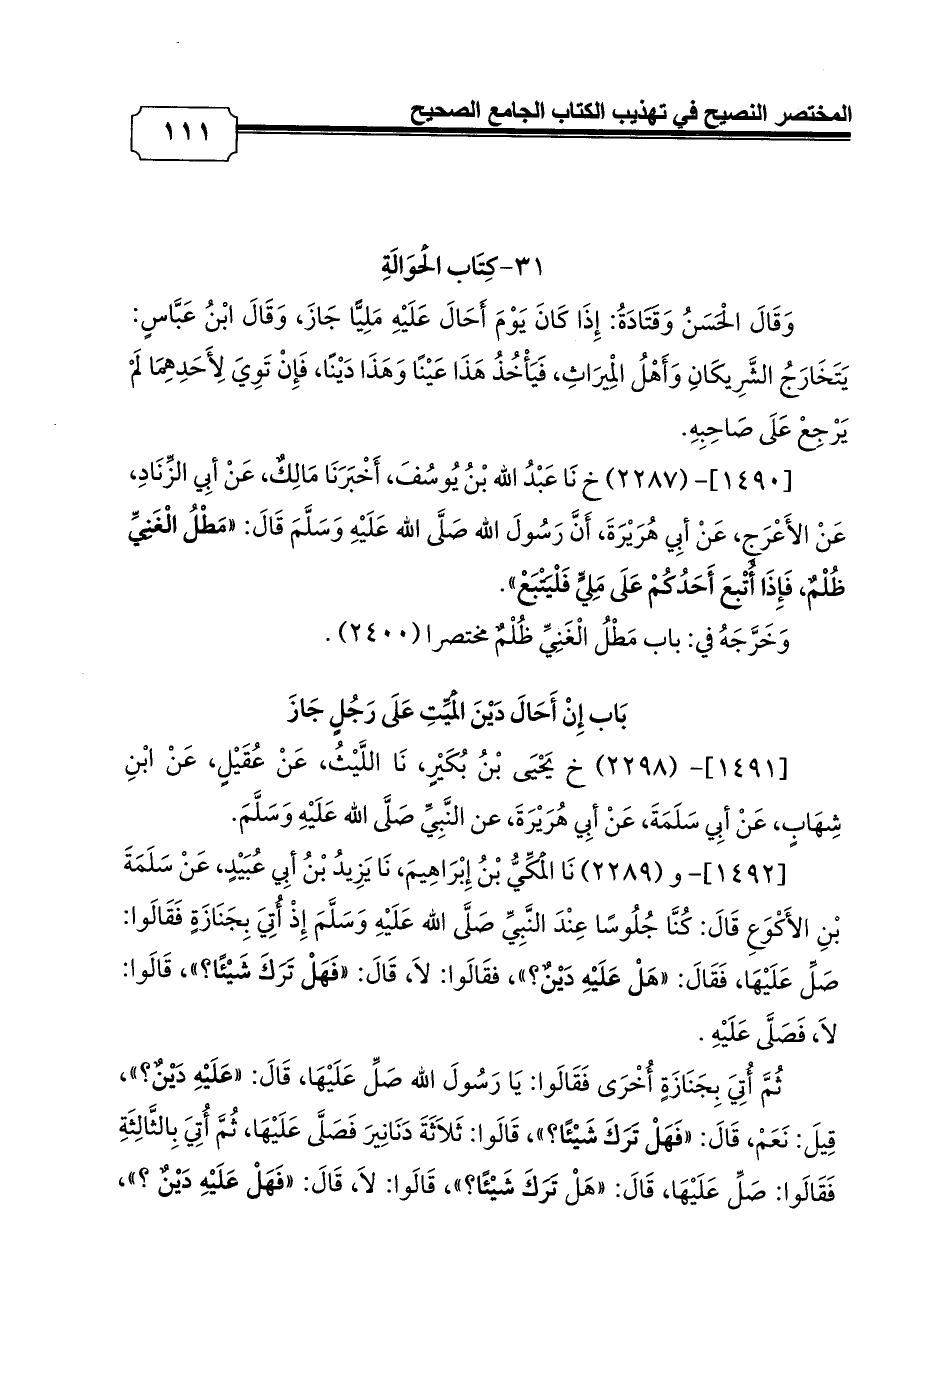 المختصر النصيح في تهذيب الكتاب الجامع الصحيح
١١١
٣١- كِتَاب الْحَوَالَةِ
وَقَالَ الْحَسَنُ وَقَتَادَةُ: إِذَا كَانَ يَوْمَ أَحَالَ عَلَيْهِ مَلِيًّا جَازَ، وَقَالَ ابْنُ عَبَّاسٍ:
يَتَخَارَجُ الشَّرِيكَانِ وَأَهْلُ الْمِيرَاثِ، فَيَأْخُذُ هَذَا عَيْنًا وَهَذَا دَيْنًا، فَإِنْ تَوِيَ لِأَحَدِهِمَا لَمْ
يَرْجِعْ عَلَى صَاحِبِهِ.
[١٤٩٠]- (٢٢٨٧) خ نَا عَبْدُ الله بْنُ يُوسُفَ، أَخْبَرَنَا مَالِكٌ، عَنْ أَبِي الزِّنَادِ،
عَنْ الأَعْرَجِ، عَنْ أَبِي هُرَيْرَةَ، أَنَّ رَسُولَ الله صَلَّى الله عَلَيْهِ وَسَلَّمَ قَالَ: «مَطْلُ الْغَنِيِّ
ظُلْمٌ، فَإِذَا أُتْبِعَ أَحَدُكُمْ عَلَى مَلِيٍّ فَلْيَتْبَعْ».
وَخَرَّجَهُ في: باب مَطْلُ الْغَنِيِّ ظُلْمٌ مختصرا (٢٤٠٠).
بَاب إِنْ أَحَالَ دَيْنَ الْمَيِّتِ عَلَى رَجُلٍ جَازَ
[١٤٩١]- (٢٢٩٨) خ يَحْيَى بْنُ بُكَيْرٍ، نَا اللَّيْثُ، عَنْ عُقَيْلٍ، عَنْ ابْنِ
شِهَابٍ، عَنْ أَبِي سَلَمَةَ، عَنْ أَبِي هُرَيْرَةَ، عن النَّبِيِّ صَلَّى الله عَلَيْهِ وَسَلَّمَ.
[١٤٩٢]- و (٢٢٨٩) نَا الْمَكِّيُّ بْنُ إِبْرَاهِيمَ، نَا يَزِيدُ بْنُ أَبِي عُبَيْدٍ، عَنْ سَلَمَةَ
بْنِ الأَكْوَعِ قَالَ: كُنَّا جُلُوسًا عِنْدَ النَّبِيِّ صَلَّى الله عَلَيْهِ وَسَلَّمَ إِذْ أُتِيَ بِجَنَازَةٍ فَقَالُوا:
صَلِّ عَلَيْهَا، فَقَالَ: «هَلْ عَلَيْهِ دَيْنٌ؟»، فقَالُوا: لاَ، قَالَ: «فَهَلْ تَرَكَ شَيْئًا؟»، قَالُوا:
لاَ، فَصَلَّى عَلَيْهِ .
ثُمَّ أُتِيَ بِجَنَازَةٍ أُخْرَى فَقَالُوا: يَا رَسُولَ الله صَلِّ عَلَيْهَا، قَالَ: «عَلَيْهِ دَيْنٌ؟»،
قِيلَ: نَعَمْ، قَالَ: «فَهَلْ تَرَكَ شَيْئًا؟»، قَالُوا: ثَلاَثَةَ دَنَانِيرَ فَصَلَّى عَلَيْهَا، ثُمَّ أُتِيَ بِالثَّالِثَةِ
فَقَالُوا: صَلِّ عَلَيْهَا، قَالَ: «هَلْ تَرَكَ شَيْئًا؟»، قَالُوا: لاَ، قَالَ: «فَهَلْ عَلَيْهِ دَيْنٌ ؟»،